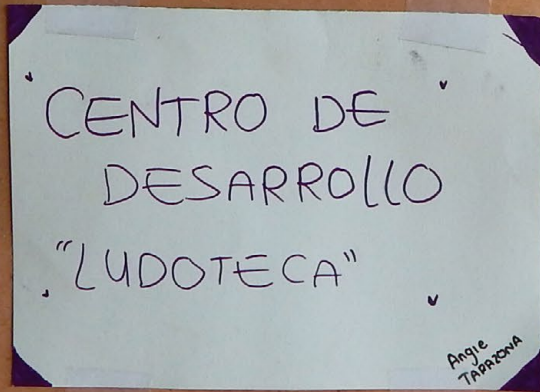 CENTRO DE
DESARROLLO
"LUDOTECA"
Angie
TARAZONA